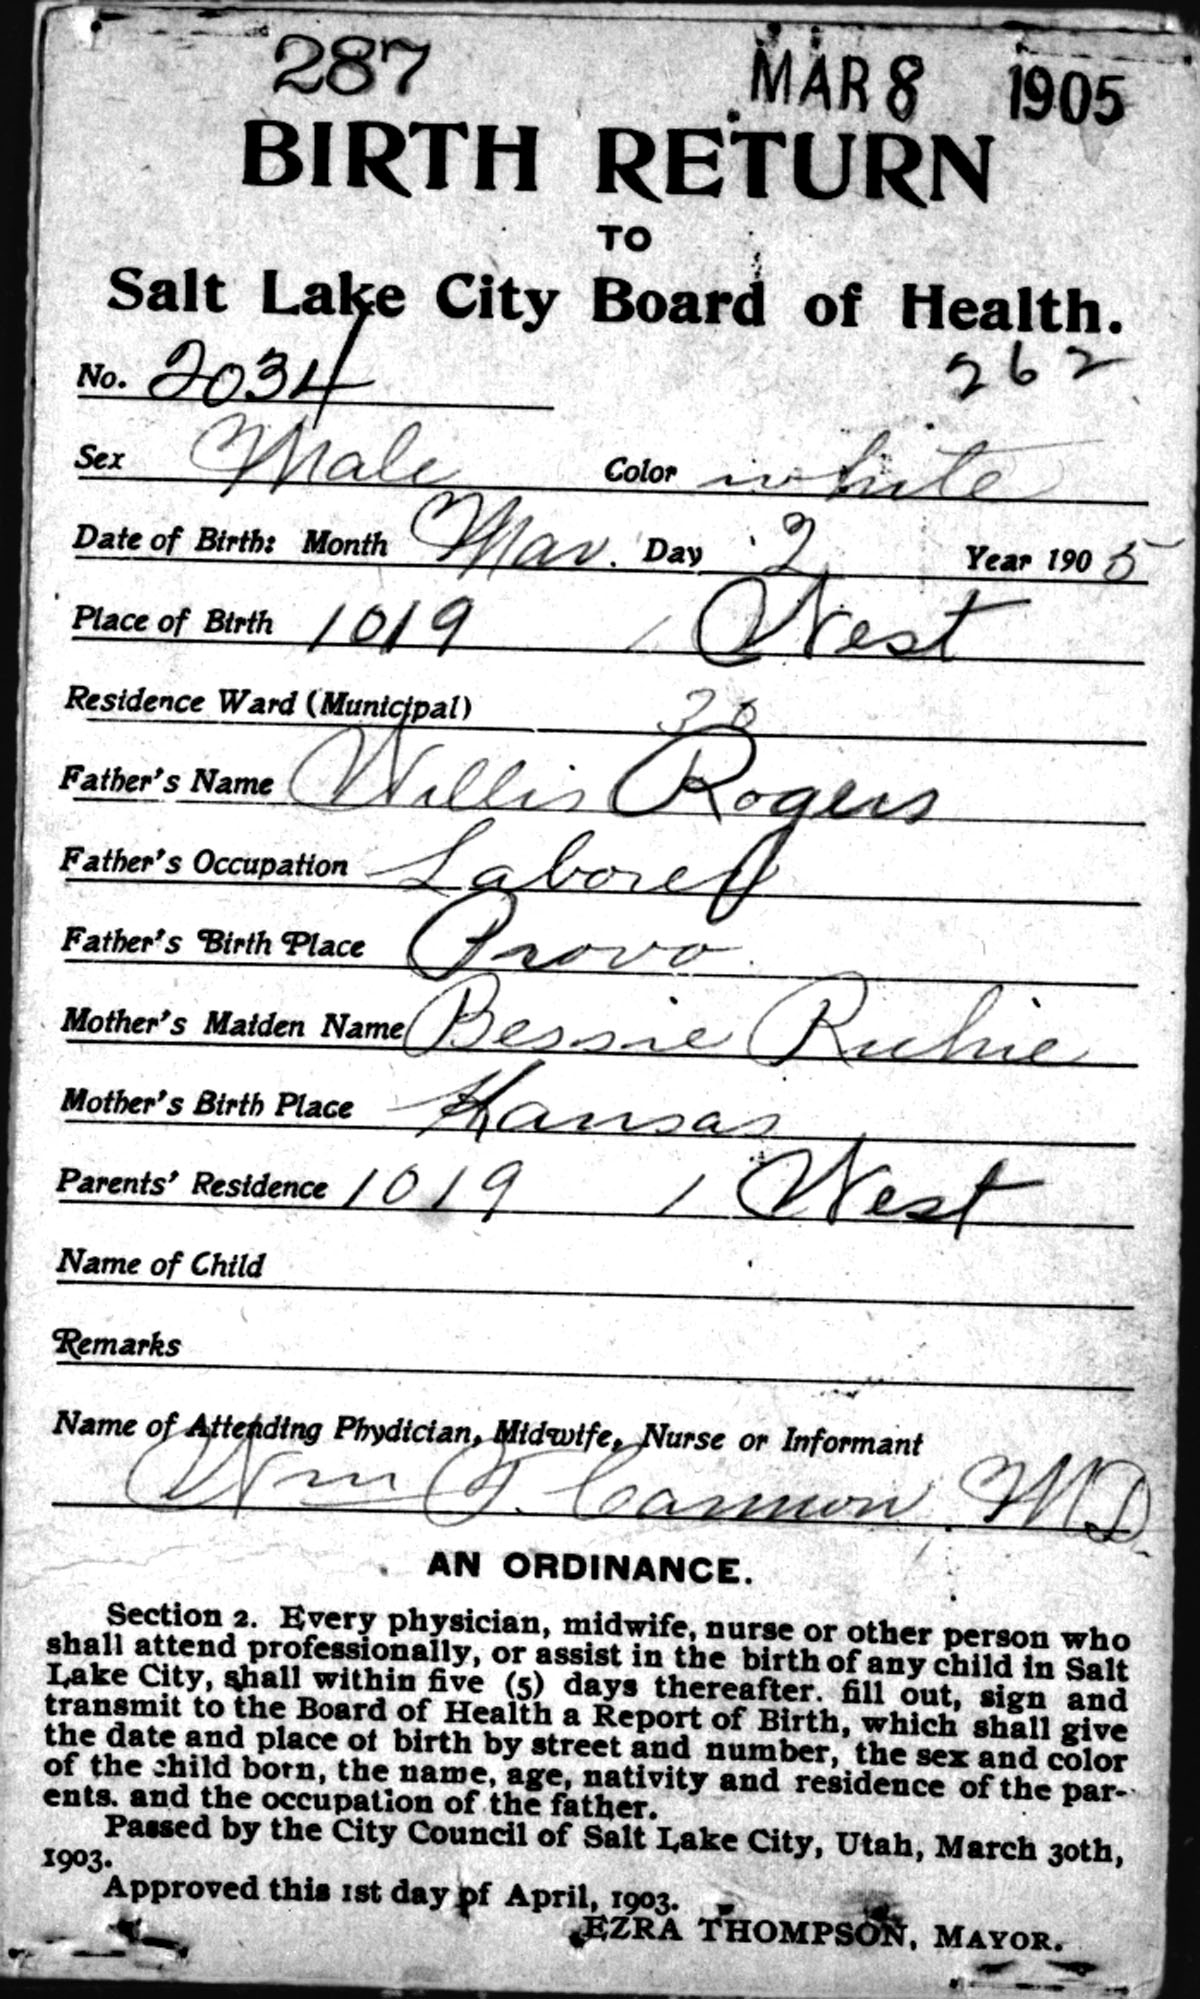 287 MAR 8 1905
BIRTH RETURN
TO
Salt Lake City Board of Health.
262
No. 2034
Sex Male Color white
Date of Birth: Month Mar. Day 2 Year 1905
Place of Birth 1019 1 West
Residence Ward (Municipal)
Father's Name Willis Rogers
Father's Occupation Laborer
Father's Birth Place Provo
Mother's Maiden Name Bessie Richie
Mother's Birth Place Kansas
Parents' Residence 1019 1 West
Name of Child
Remarks
Name of Attending Phydician, Midwife, Nurse or Informant
Wm T. Cannon MD.
AN ORDINANCE.
Section 2. Every physician, midwife, nurse or other person who
shall attend professionally, or assist in the birth of any child in Salt
Lake City, shall within five (5) days thereafter. fill out, sign and
transmit to the Board of Health a Report of Birth, which shall give
the date and place of birth by street and number, the sex and color
of the child born, the name, age, nativity and residence of the par-
ents. and the occupation of the father.
Passed by the City Council of Salt Lake City, Utah, March 30th,
1903.
Approved this 1st day of April, 1903.
EZRA THOMPSON, MAYOR.